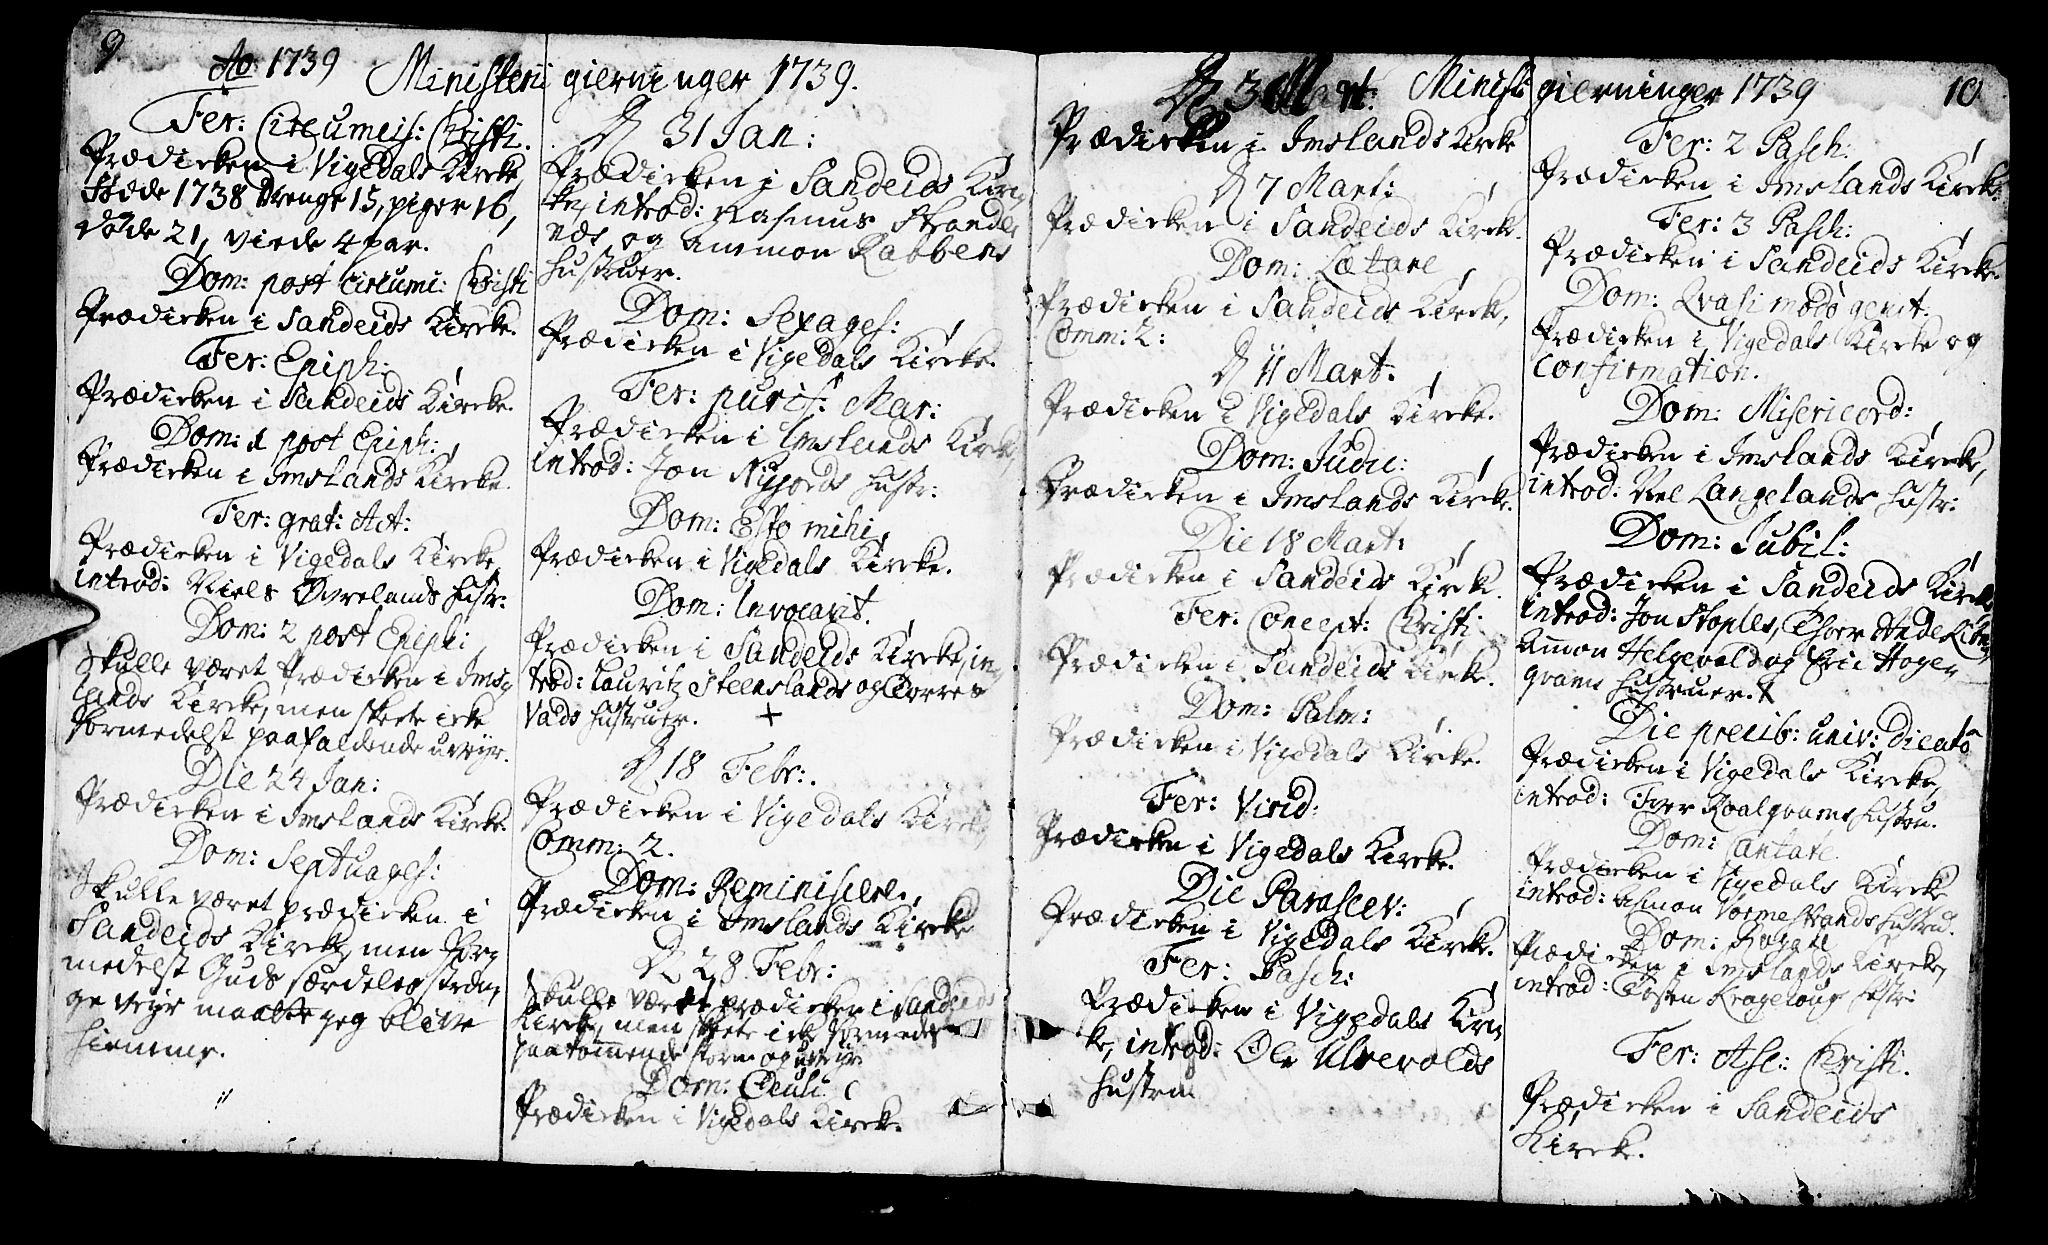 9
Ao 1739 Ministerii gierninger 1739.
Fer: Circumcis: Christi.
Prædicken i Vigedals Kircke,
födde 1738 Drenge 15, piger 16,
döde 21, viede 4 par.
Dom: post circumc: Christi
Prædicken i Sandeids Kircke.
Fer: Epiph:
Prædicken i Sandeids Kircke.
Dom: 1 post Epiph:
Prædicken i Imslands Kircke.
Fer: grat: Act:
Prædicken i Vigedals Kircke,
introd: Niels Övrelands hustr:
Dom: 2 post Epiph:
Skulle været Prædicken i Ims-
lands Kircke, men skeete icke
formedelst paafaldende uveyr.
Die 24 Jan:
Prædicken i Imslands Kircke.
Dom: Septuages:
Skulle været prædicken i
Sandeids Kircke, men for-
medelst Guds særdeles stræn-
ge veyr maatte jeg blive
hiemme.
D 31 Jan:
Prædicken i Sandeids Kirc-
ke, introd: Rasmus Strande-
næs og Ammon Rabbens
hustruer.
Dom: Sexages:
Prædicken i Vigedals Kircke.
Fer: purif: Mar:
Prædicken i Imslands Kircke,
introd: Jon hustr:
Dom: Esto mihi,
Prædicken i Vigedals Kircke.
Dom: Invocavit.
Prædicken i Sandeids Kircke, in-
trod: Lauritz Steenslands og Torre
Vads hustruer. +
D 18 Febr:
Prædicken i Vigedals Kircke,
Comm: 2.
Dom: Reminiscere.
Prædicken i Imslands Kircke
D 28 Febr:
Skulle været prædicken i Sandeids
Kircke, men skeete icke formedelst
paakommende storm og uveyr
Dom: Oculi
Prædicken i Vigedals Kircke.
D 3 Mart: Minist: gierninger 1739 10
Prædicken i Imslands Kircke
D 7 Mart:
Prædicken i Sandeids Kircke.
Dom: Lætare
Prædicken i Sandeids Kircke,
Comm: 2:
D 11 Mart:
Prædicken i Vigedals Kircke.
Dom: Judic:
Prædicken i Imslands Kircke.
Die 18 Mart:
Prædicken i Sandeids Kircke.
Fer: Concept: Christi
Prædicken i Sandeids Kircke.
Dom: Palm:
Prædicken i Vigedals Kircke.
Fer: Virid:
Prædicken i Vigedals Kircke.
Die Parascev:
Prædicken i Vigedals Kircke.
Fer: Pasch:
Prædicken i Vigedals Kirc-
ke, introd: Ole Ulvevolds
hustru
Fer: 2 Pasch:
Prædicken i Imslands Kircke.
Fer: 3 Pasch:
Prædicken i Sandeids Kircke.
Dom: Qvasimodo genit:
Prædicken i Vigedals Kircke og
Confirmation.
Dom: Misericord:
Prædicken i Imslands Kircke,
introd: Nel Langelands hustr:
Dom: Jubil:
Prædicken i Sandeids Kircke
introd: Jon Stoples,
Ammon Helgevold og Eric Hogen
qvams hustruer. +
Die precib: univ: dicato
Prædicken i Vigedals Kircke,
introd: Tore Roalqvams hustru.
Dom: Cantate
Prædicken i Vigedals Kircke
introd: Asmon Vormestrands hustru.
Dom: Rogate
Prædicken i Imslands Kircke,
introd: Tosten Kragehoug hustr:
Fer: Asc: Christi.
Prædicken i Sandeids
Kircke.